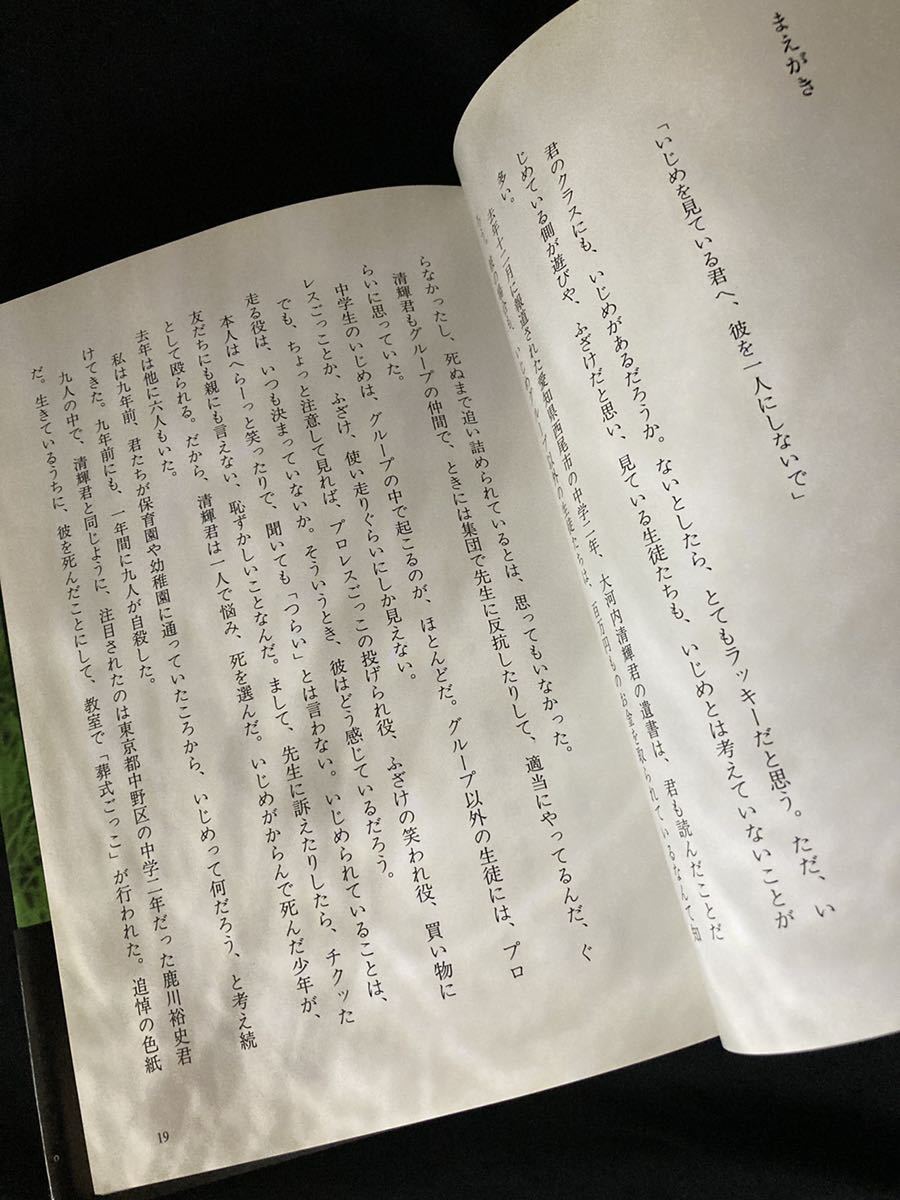 まえがき
「いじめを見ている君へ、彼を一人にしないで」
君のクラスにも、いじめがあるだろうか。ないとしたら、とてもラッキーだと思う。ただ、い
じめている側が遊びや、ふざけだと思い、見ている生徒たちも、いじめとは考えていないことが
多い。
去年十二月に報道された愛知県西尾市の中学二年、大河内清輝君の遺書は、君も読んだことだ
いじめグループ以外の生徒たちは、百万円ものお金を取られているなんて知
らなかったし、死ぬまで追い詰められているとは、思ってもいなかった。
清輝君もグループの仲間で、ときには集団で先生に反抗したりして、適当にやってるんだ、ぐ
らいに思っていた。
中学生のいじめは、グループの中で起こるのが、ほとんどだ。グループ以外の生徒には、プロ
レスごっことか、ふざけ、使い走りぐらいにしか見えない。
でも、ちょっと注意して見れば、プロレスごっこの投げられ役、ふざけの笑われ役、買い物に
走る役は、いつも決まっていないか。そういうとき、彼はどう感じているだろう。
本人はへらーっと笑ったりで、聞いても「つらい」とは言わない。いじめられていることは、
友だちにも親にも言えない、恥ずかしいことなんだ。まして、先生に訴えたりしたら、チクッた
として殴られる。だから、清輝君は一人で悩み、死を選んだ。いじめがからんで死んだ少年が、
去年は他に六人もいた。
私は九年前、君たちが保育園や幼稚園に通っていたころから、いじめって何だろう、と考え続
けてきた。九年前にも、一年間に九人が自殺した。
九人の中で、清輝君と同じように、注目されたのは東京都中野区の中学二年だった鹿川裕史君
だ。生きているうちに、彼を死んだことにして、教室で「葬式ごっこ」が行われた。追悼の色紙
19